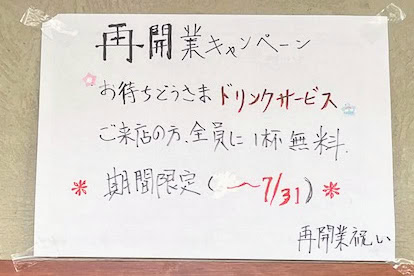 再開業キャンペーン
お待ちどうさま ドリンクサービス
ご来店の方、全員に1杯無料.
* 期間限定(〜7/31) *
再開業祝い